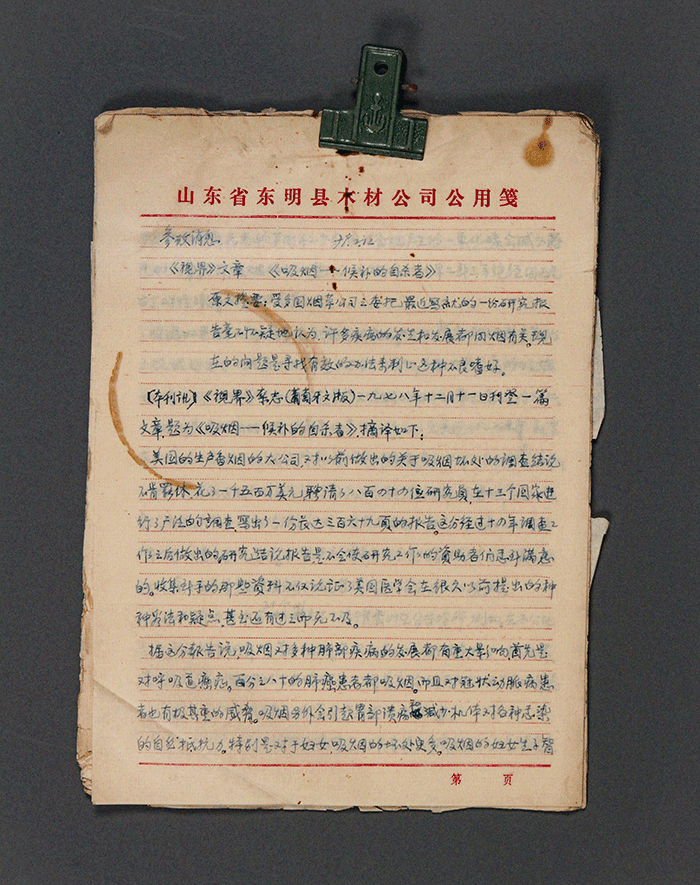 山东省东明县木材公司公用笺
参攷消息
《视界》文章 《吸烟——候补的自杀者》
原文摘要：受多国烟草公司之委托 最近写就的一份研究报
告毫不怀疑地认为，许多疾病的发生和发展都同烟有关。现
在的问题是寻找有效的办法来制止这种不良嗜好。
【本刊讯】《视界》杂志（葡萄牙文版）一九七八年十二月十一日刊登一篇
文章，题为《吸烟——候补的自杀者》，摘译如下：
美国的生产香烟的大公司，对以前做出的关于吸烟坏处的调查结论
不肯罢休，花了一千五百万美元，聘请了八百四十四位研究员，在十三个国家进
行了广泛的调查，写出了一份长达三百六十九页的报告。这份经过十四年调查工
作之后做出的研究结论报告是不会使研究工作的资助者们感到满意
的。收集到手的那些资料不仅论证了美国医学会在很久以前提出的种
种看法和疑点，甚至还有过之而无不及。
据这份报告说，吸烟对多种肺部疾病的发展都有重大影响，首先是
对呼吸道癌症。百分之八十的肺癌患者都吸烟。而且对冠状动脉病患
者也有极其重的威胁。吸烟另外会引起胃部溃疡和减少机体对各种感染
的自然抵抗力。特别是对于妇女，吸烟的坏处更多。吸烟的妇女生子智
第 页